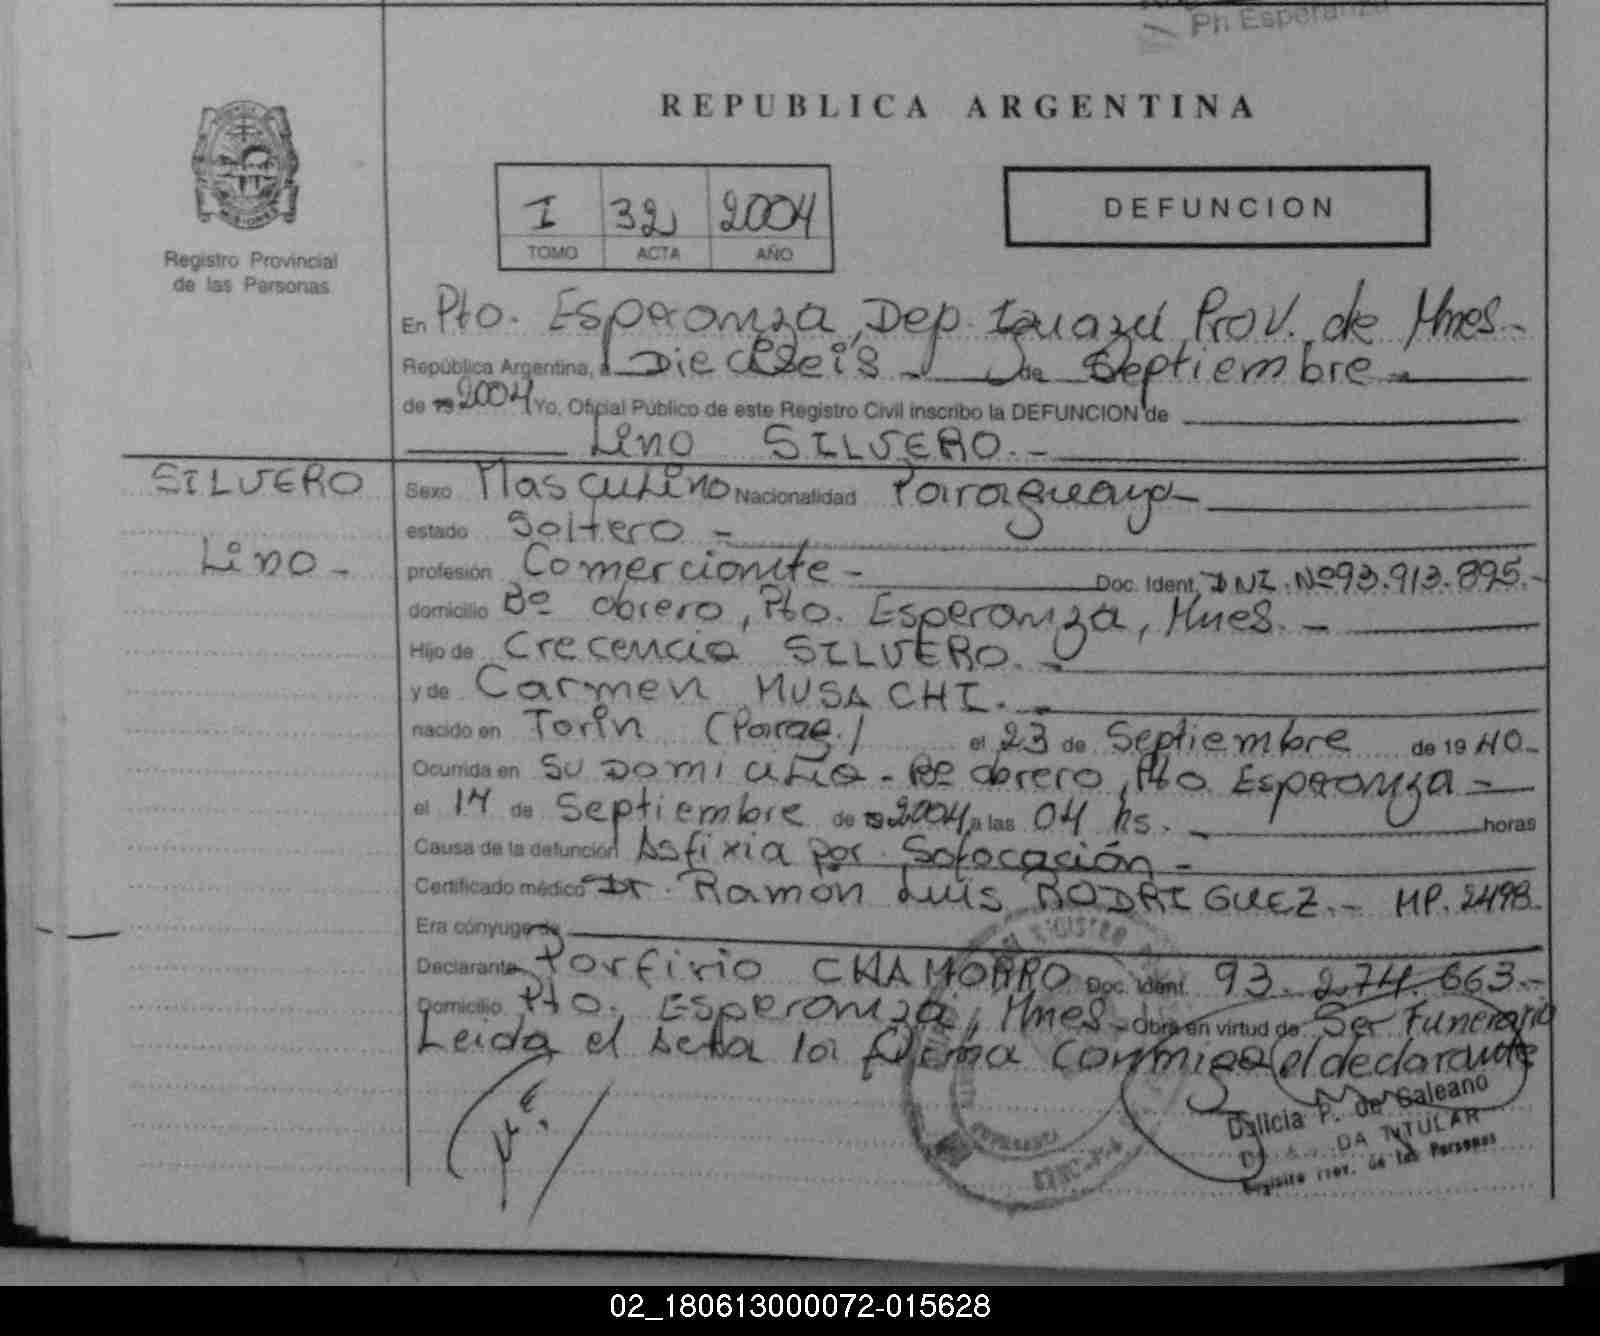 Ph Esperanza
REPUBLICA ARGENTINA
I 32 2004
TOMO ACTA AÑO
DEFUNCION
Registro Provincial
de las Personas
En Pto. Esperanza, Dep. Iguazú Prov. de Mnes.-
República Argentina, a Dieciseis - de Septiembre -
de 19 2004 Yo, Oficial Público de este Registro Civil inscribo la DEFUNCION de
Lino SILVERO.-
SILVERO
Lino -
Sexo Masculino Nacionalidad Paraguaya
estado Soltero -
profesión Comerciante - Doc. Ident. DNI. Nº 93.913.895.-
domicilio Bº obrero, Pto. Esperanza, Mnes. -
Hijo de Crecencio SILVERO. -
y de Carmen MUSACHI. -
nacido en Torin (Parag.) el 23 de Septiembre de 19 40.-
Ocurrida en Su Domicilio - Bº obrero, Pto Esperanza -
el 14 de Septiembre de 19 2004 a las 04 hs. - horas
Causa de la defunción Asfixia por Sofocación -
Certificado médico Dr. Ramón Luis RODRIGUEZ.- MP. 2498.
Era cónyuge de
Declarante Porfirio CHAMORRO Doc. Ident. 93.274.663.-
Domicilio Pto. Esperanza, Mnes - Obra en virtud de Ser Funerario
Leida el Acta la firma conmigo el declarante
Dalicia P. de Galeano
DA TITULAR
Prov. de las Personas
02_180613000072-015628